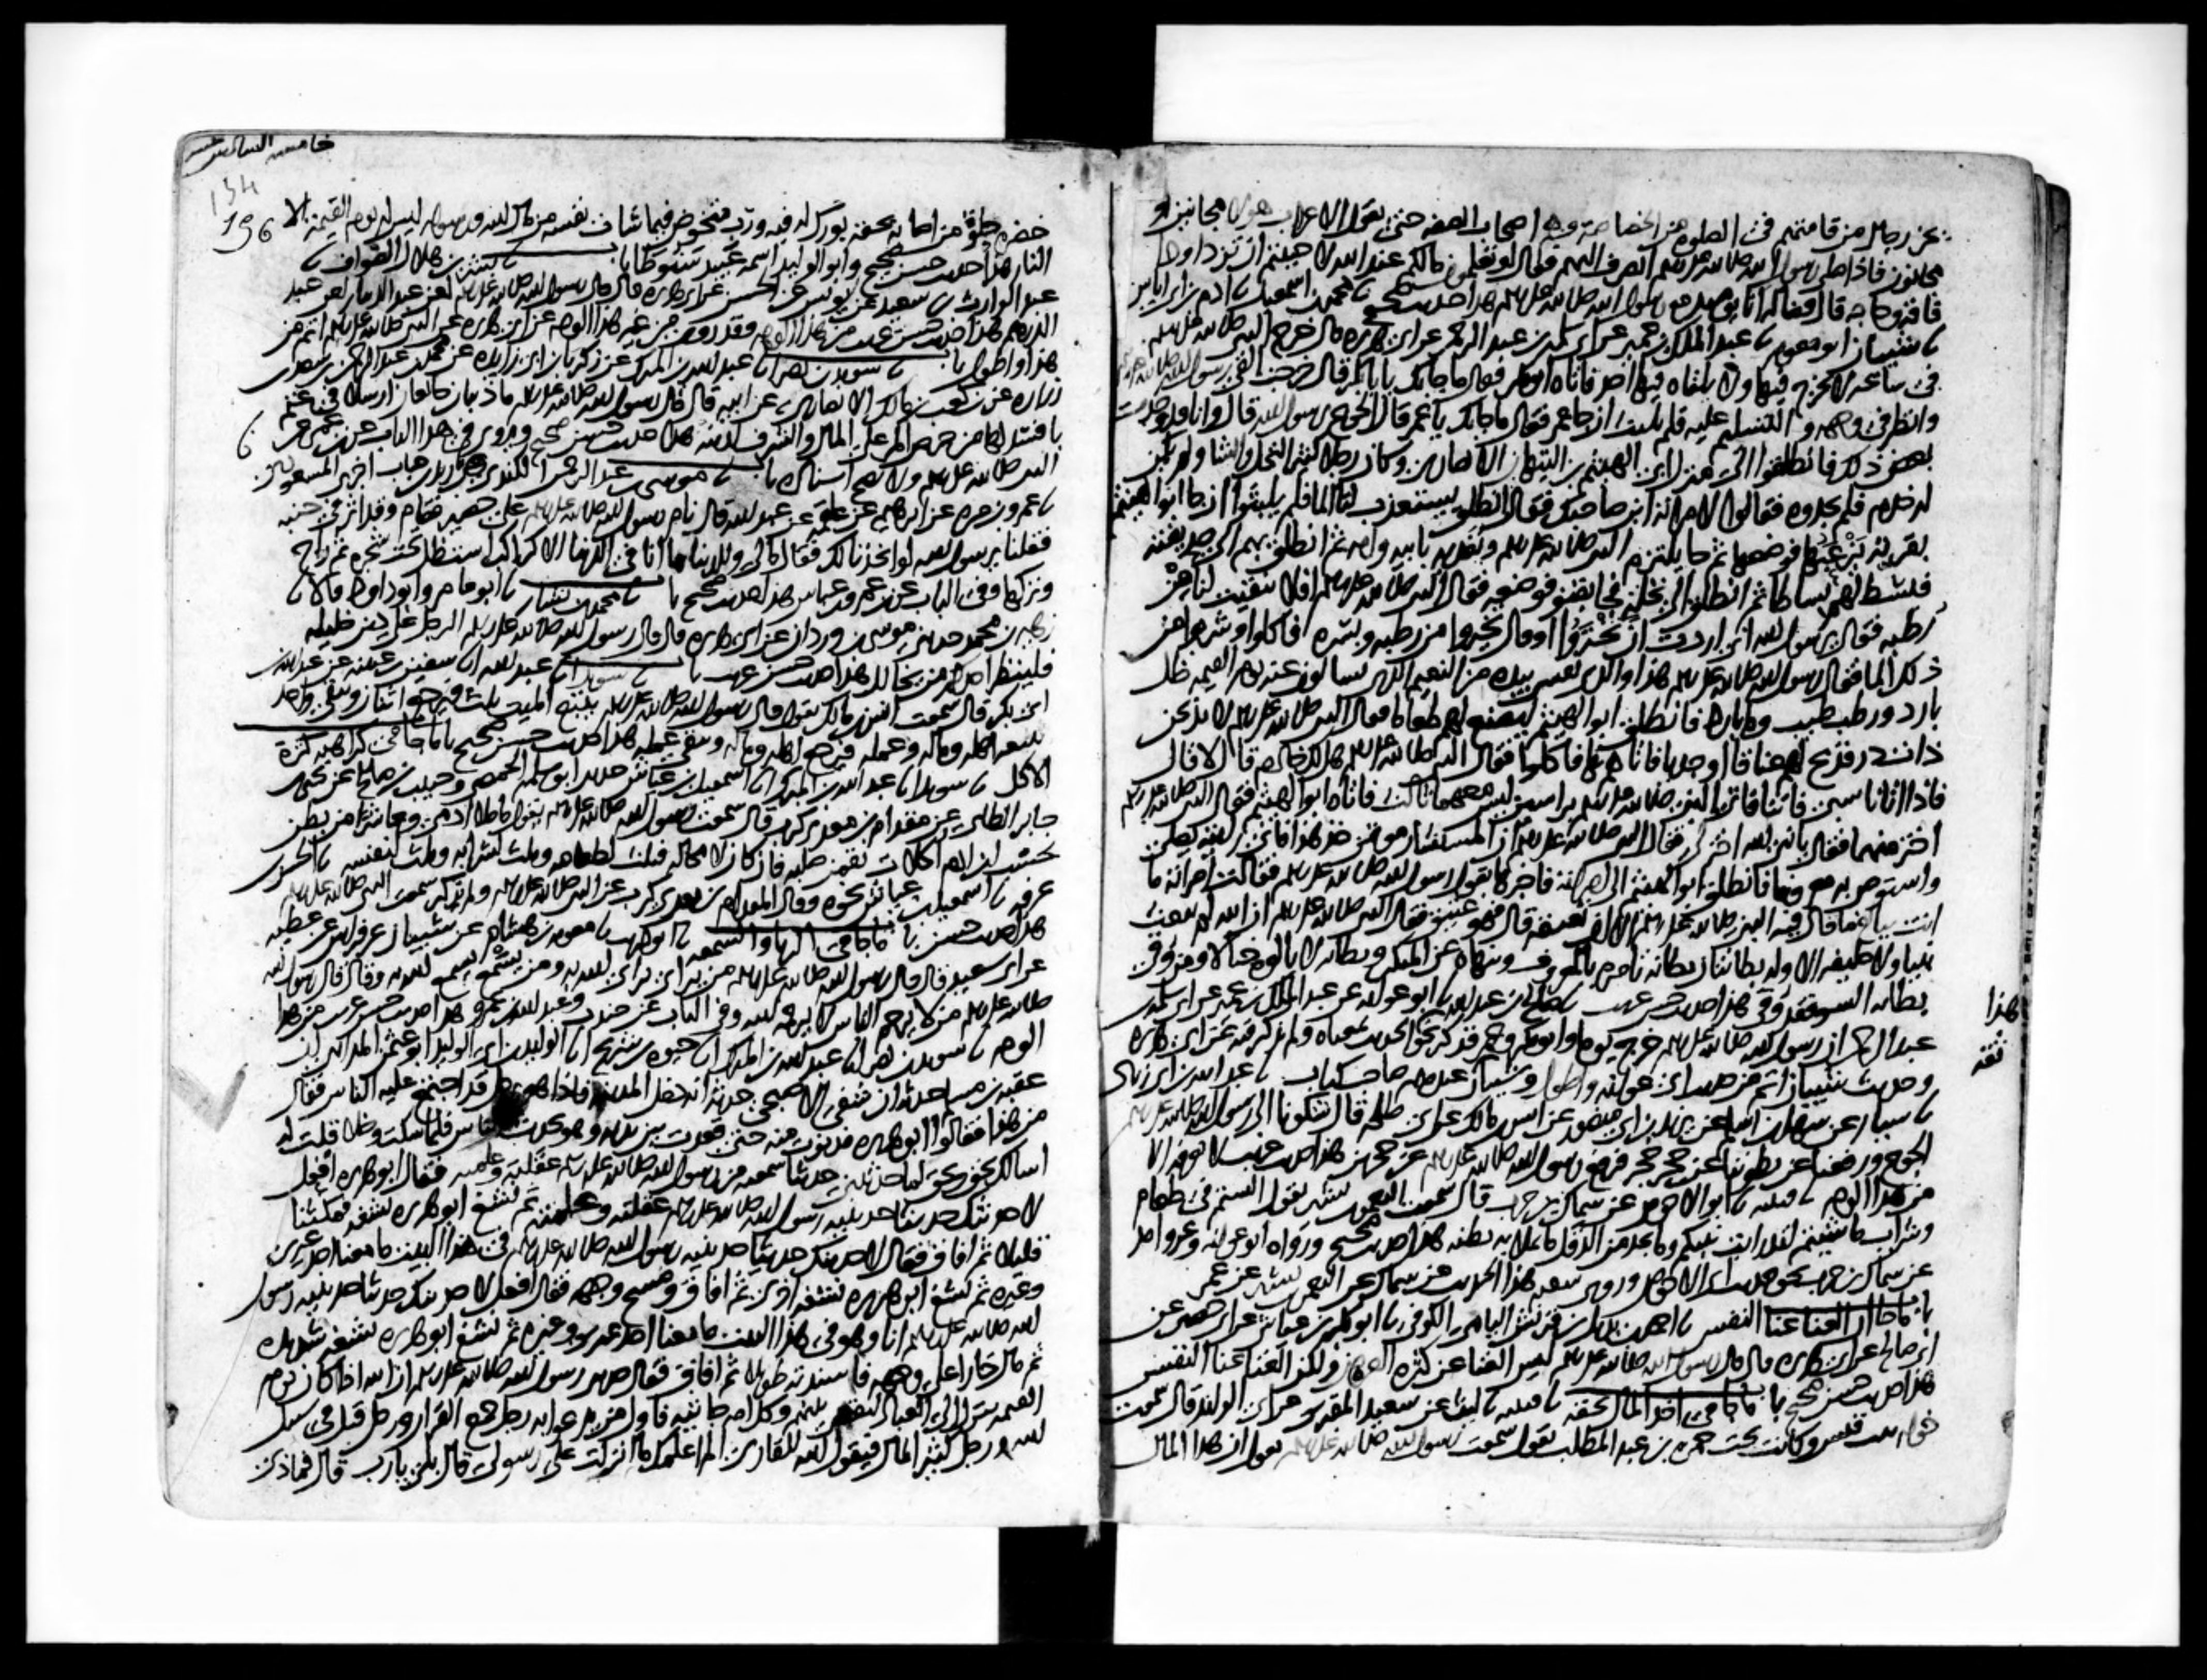 يخر رجال من قامتهم في الصلوة من الخصاصة وهم اصحاب الصفه حتى تقول الاعراب هولا مجانين او
مجانون فاذا صلى رسول الله صلى الله عليه وسلم انصرف اليهم فقال لو تعلمون مالكم عند الله لاحببتم ان تزدادوا
فاقة وحاجه قال فضاله انا يوميذ مع رسول الله صلى الله عليه وسلم هذا حديث صحيح نا محمد بن اسمعيل نا ادم بن ابي اياس
نا شيبان ابو معويه نا عبد الملك بن عمير عن ابي سلمه بن عبد الرحمن عن ابي هريره قال خرج النبي صلى الله عليه وسلم
في ساعه لا يخرج فيها ولا يلقاه فيها احد فاتاه ابو بكر فقال ما جا بك يا ابا بكر قال خرجت القى رسول الله صلى الله عليه وسلم
وانظر في وجهه والتسليم عليه فلم يلبث ان جا عمر فقال ما جا بك يا عمر قال الجوع يرسول الله قال وانا قد وجدت
بعض ذلك فانطلقوا الى منزل ابي الهيثم بن التيهان الانصاري وكان رجلا كثير النخل والشا ولم يكن
له خدم فلم يجدوه فقالوا لامراته اين صاحبك فقالت انطلق يستعذب لنا الما فلم يلبثوا ان جا ابو الهيثم
بقربة يزعبها فوضعها ثم جا يلتزم النبي صلى الله عليه وسلم ويفديه بابيه وامه ثم انطلق بهم الى حديقته
فبسط لهم بساطا ثم انطلق الى نخلة فجا بقنو فوضعه فقال النبي صلى الله عليه وسلم افلا تنقيت لنا من
رطبه فقال يرسول الله اني اردت ان تختاروا او قال تخيروا من رطبه وبسره فاكلوا وشربوا من
ذلك الما فقال رسول الله صلى الله عليه وسلم هذا والذي نفسي بيده من النعيم الذي تسالون عنه يوم القيمه ظل
بارد ورطب طيب وما بارد فانطلق ابو الهيثم ليصنع لهم طعاما فقال النبي صلى الله عليه وسلم لا تذبحن
ذات در فذبح لهم عناقا او جديا فاتاهم بها فاكلوا فقال النبي صلى الله عليه وسلم هل لك خادم قال لا قال
فاذا اتانا سبي فاتنا فاتي النبي صلى الله عليه وسلم براسين ليس معهما ثالث فاتاه ابو الهيثم فقال النبي صلى الله عليه وسلم
اختر منهما فقال يا نبي الله اختر لي فقال النبي صلى الله عليه وسلم ان المستشار موتمن خذ هذا فاني رايته يصلي
واستوص به معروفا فانطلق ابو الهيثم الى امراته فاخبرها بقول رسول الله صلى الله عليه وسلم فقالت امراته ما
انت ببالغ ما قال فيه النبي صلى الله عليه وسلم الا ان تعتقه قال فهو عتيق فقال النبي صلى الله عليه وسلم ان الله لم يبعث
نبيا ولا خليفه الا وله بطانتان بطانه تامره بالمعروف وتنهاه عن المنكر وبطانه لا تالوه خبالا ومن يوق
بطانه السو فقد وقي هذا حديث حسن غريب نا صالح بن عبد الله نا ابو عوانه عن عبد الملك بن عمير عن ابي سلمه بن
عبد الرحمن ان رسول الله صلى الله عليه وسلم خرج يوما وابو بكر وعمر فذكر نحو الحديث بمعناه ولم يذكر فيه عن ابي هريره
وحديث شيبان اتم من حديث ابي عوانه واطول وشيبان عندهم صاحب كتاب نا عبد الله بن ابي زياد
نا سيار عن سهل بن اسلم عن يزيد بن ابي منصور عن انس بن مالك عن ابي طلحه قال شكونا الى رسول الله صلى الله عليه وسلم
الجوع ورفعنا عن بطوننا عن حجر حجر فرفع رسول الله صلى الله عليه وسلم عن حجرين هذا حديث غريب لا نعرفه الا
من هذا الوجه نا قتيبه نا ابو الاحوص عن سماك بن حرب قال سمعت النعمن بن بشير يقول الستم في طعام
وشراب ما شيتم لقد رايت نبيكم وما يجد من الدقل ما يملا به بطنه هذا حديث صحيح ورواه ابو عوانه وغير واحد
عن سماك بن حرب نحو حديث ابي الاحوص وروى شعبه هذا الحديث عن سماك عن النعمن بن بشير عن عمر
با ما جا ان الغنا غنا النفس نا احمد بن بديل بن قريش اليامي الكوفي نا ابو بكر بن عياش عن ابي حصين عن
ابي صالح عن ابي هريره قال قال رسول الله صلى الله عليه وسلم ليس الغنا عن كثره العرض ولكن الغنا غنا النفس
هذا حديث حسن صحيح با ما جا في اخذ المال بحقه نا قتيبه نا ليث عن سعيد المقبري عن ابي الوليد قال سمعت
خوله بنت قيس وكانت تحت حمزه بن عبد المطلب تقول سمعت رسول الله صلى الله عليه وسلم يقول ان هذا المال
هذا
ثقه
خامسه السادس عشر
134
196
خضره حلوة من اصابه بحقه بورك له فيه ورب متخوض فيما شات نفسه من مال الله ورسوله ليس له يوم القيمه الا
النار هذا حديث حسن صحيح وابو الوليد اسمه عبيد سنوطا با نا بشر بن هلال الصواف نا
عبد الوارث بن سعيد عن يونس عن الحسن عن ابي هريره قال قال رسول الله صلى الله عليه وسلم لعن عبد الدينار لعن عبد
الدرهم هذا حديث حسن غريب من هذا الوجه وقد روي من غير هذا الوجه عن ابي هريره عن النبي صلى الله عليه وسلم اتم من
هذا واطول با نا سويد بن نصر انا عبد الله بن المبرك عن زكريا بن ابي زايده عن محمد بن عبد الرحمن بن سعد بن
زراره عن بن كعب بن مالك الانصاري عن ابيه قال قال رسول الله صلى الله عليه وسلم ما ذيبان جايعان ارسلا في غنم
بافسد لها من حرص المر على المال والشرف لدينه هذا حديث حسن صحيح ويروى في هذا الباب عن بن عمر عن
النبي صلى الله عليه وسلم ولا يصح اسناده با نا موسى بن عبد الرحمن الكندي نا زيد بن حباب اخبرني المسعودي
نا عمرو بن مره عن ابراهيم عن علقمه عن عبد الله قال نام رسول الله صلى الله عليه وسلم على حصير فقام وقد اثر في جنبه
فقلنا يرسول الله لو اتخذنا لك فقال ما لي وللدنيا ما انا في الدنيا الا كراكب استظل تحت شجره ثم راح
وتركها وفي الباب عن بن عمر وبن عباس هذا حديث صحيح با نا محمد بن بشار نا ابو عامر وابو داود قالا نا
زهير بن محمد حدثني موسى بن وردان عن ابي هريره قال قال رسول الله صلى الله عليه وسلم الرجل على دين خليله
فلينظر احدكم من يخالل هذا حديث حسن غريب با نا سويد انا عبد الله انا سفين بن عيينه عن عبد الله بن
ابي بكر قال سمعت انس بن مالك يقول قال رسول الله صلى الله عليه وسلم يتبع الميت ثلث فيرجع اثنان ويبقى واحد
يتبعه اهله وماله وعمله فيرجع اهله وماله ويبقى عمله هذا حديث حسن صحيح با ما جا في كراهيه كثرة
الاكل نا سويد انا عبد الله بن المبرك انا اسمعيل بن عياش حدثني ابو سلمه الحمصي وحبيب بن صالح عن يحيى بن
جابر الطائي عن مقدام بن معدي كرب قال سمعت رسول الله صلى الله عليه وسلم يقول ما ملا ادمي وعا شرا من بطن
بحسب ابن ادم اكلات يقمن صلبه فان كان لا محاله فثلث لطعامه وثلث لشرابه وثلث لنفسه نا الحسن بن
عرفه نا اسمعيل بن عياش نحوه وقال المقدام بن معدي كرب عن النبي صلى الله عليه وسلم ولم يذكر سمعت النبي صلى الله عليه وسلم
هذا حديث حسن با ما جا في الريا والسمعه نا ابو كريب نا معويه بن هشام عن شيبان عن فراس عن عطيه
عن ابي سعيد قال قال رسول الله صلى الله عليه وسلم من يراي يراي الله به ومن يسمع يسمع الله به وقال قال رسول الله
صلى الله عليه وسلم من لا يرحم الناس لا يرحمه الله وفي الباب عن جندب وعبد الله بن عمرو هذا حديث حسن غريب من هذا
الوجه نا سويد بن نصر انا عبد الله بن المبرك انا حيوه بن شريح انا الوليد بن ابي الوليد ابو عثمن المدايني ان
عقبه بن مسلم حدثه ان شفي الاصبحي حدثه انه دخل المدينه فاذا هو برجل قد اجتمع عليه الناس فقال
من هذا فقالوا ابو هريره فدنوت منه حتى قعدت بين يديه وهو يحدث الناس فلما سكت وخلا قلت له
اسالك بحق وبحق لما حدثتني حديثا سمعته من رسول الله صلى الله عليه وسلم عقلته وعلمته فقال ابو هريره افعل
لاحدثنك حديثا حدثنيه رسول الله صلى الله عليه وسلم عقلته وعلمته ثم نشغ ابو هريره نشغه فمكثنا
قليلا ثم افاق فقال لاحدثنك حديثا حدثنيه رسول الله صلى الله عليه وسلم في هذا البيت ما معنا احد غيري
وغيره ثم نشغ ابو هريره نشغه اخرى ثم افاق ومسح وجهه فقال افعل لاحدثنك حديثا حدثنيه رسول
الله صلى الله عليه وسلم انا وهو في هذا البيت ما معنا احد غيري وغيره ثم نشغ ابو هريره نشغه شديده
ثم مال خارا على وجهه فاسندته طويلا ثم افاق فقال حدثني رسول الله صلى الله عليه وسلم ان الله اذا كان يوم
القيمه ينزل الى العباد ليقضي بينهم وكل امه جاثيه فاول من يدعوا به رجل جمع القران ورجل قتل في سبيل
الله ورجل كثير المال فيقول الله للقاري الم اعلمك ما انزلت على رسولي قال بلى يارب قال فماذا